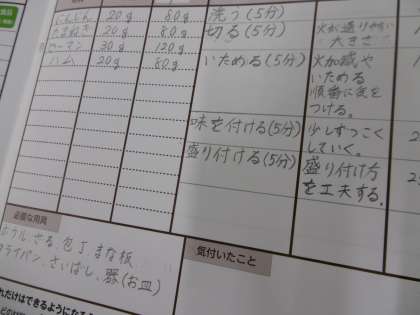 にんじん 20g 80g
たまねぎ 20g 80g
ピーマン 30g 120g
ハム 20g 80g
洗う(5分)
切る(5分)
いためる(5分)
味を付ける(5分)
盛り付ける(5分)
火が通りやすい
大きさ
火加減や
いためる
順番に気を
つける。
少しずつこく
していく。
盛り付け方
を工夫する。
必要な用具
ボウル、ざる、包丁、まな板
フライパン、さいばし、器(お皿)
気付いたこと
れだけはできるようになろう